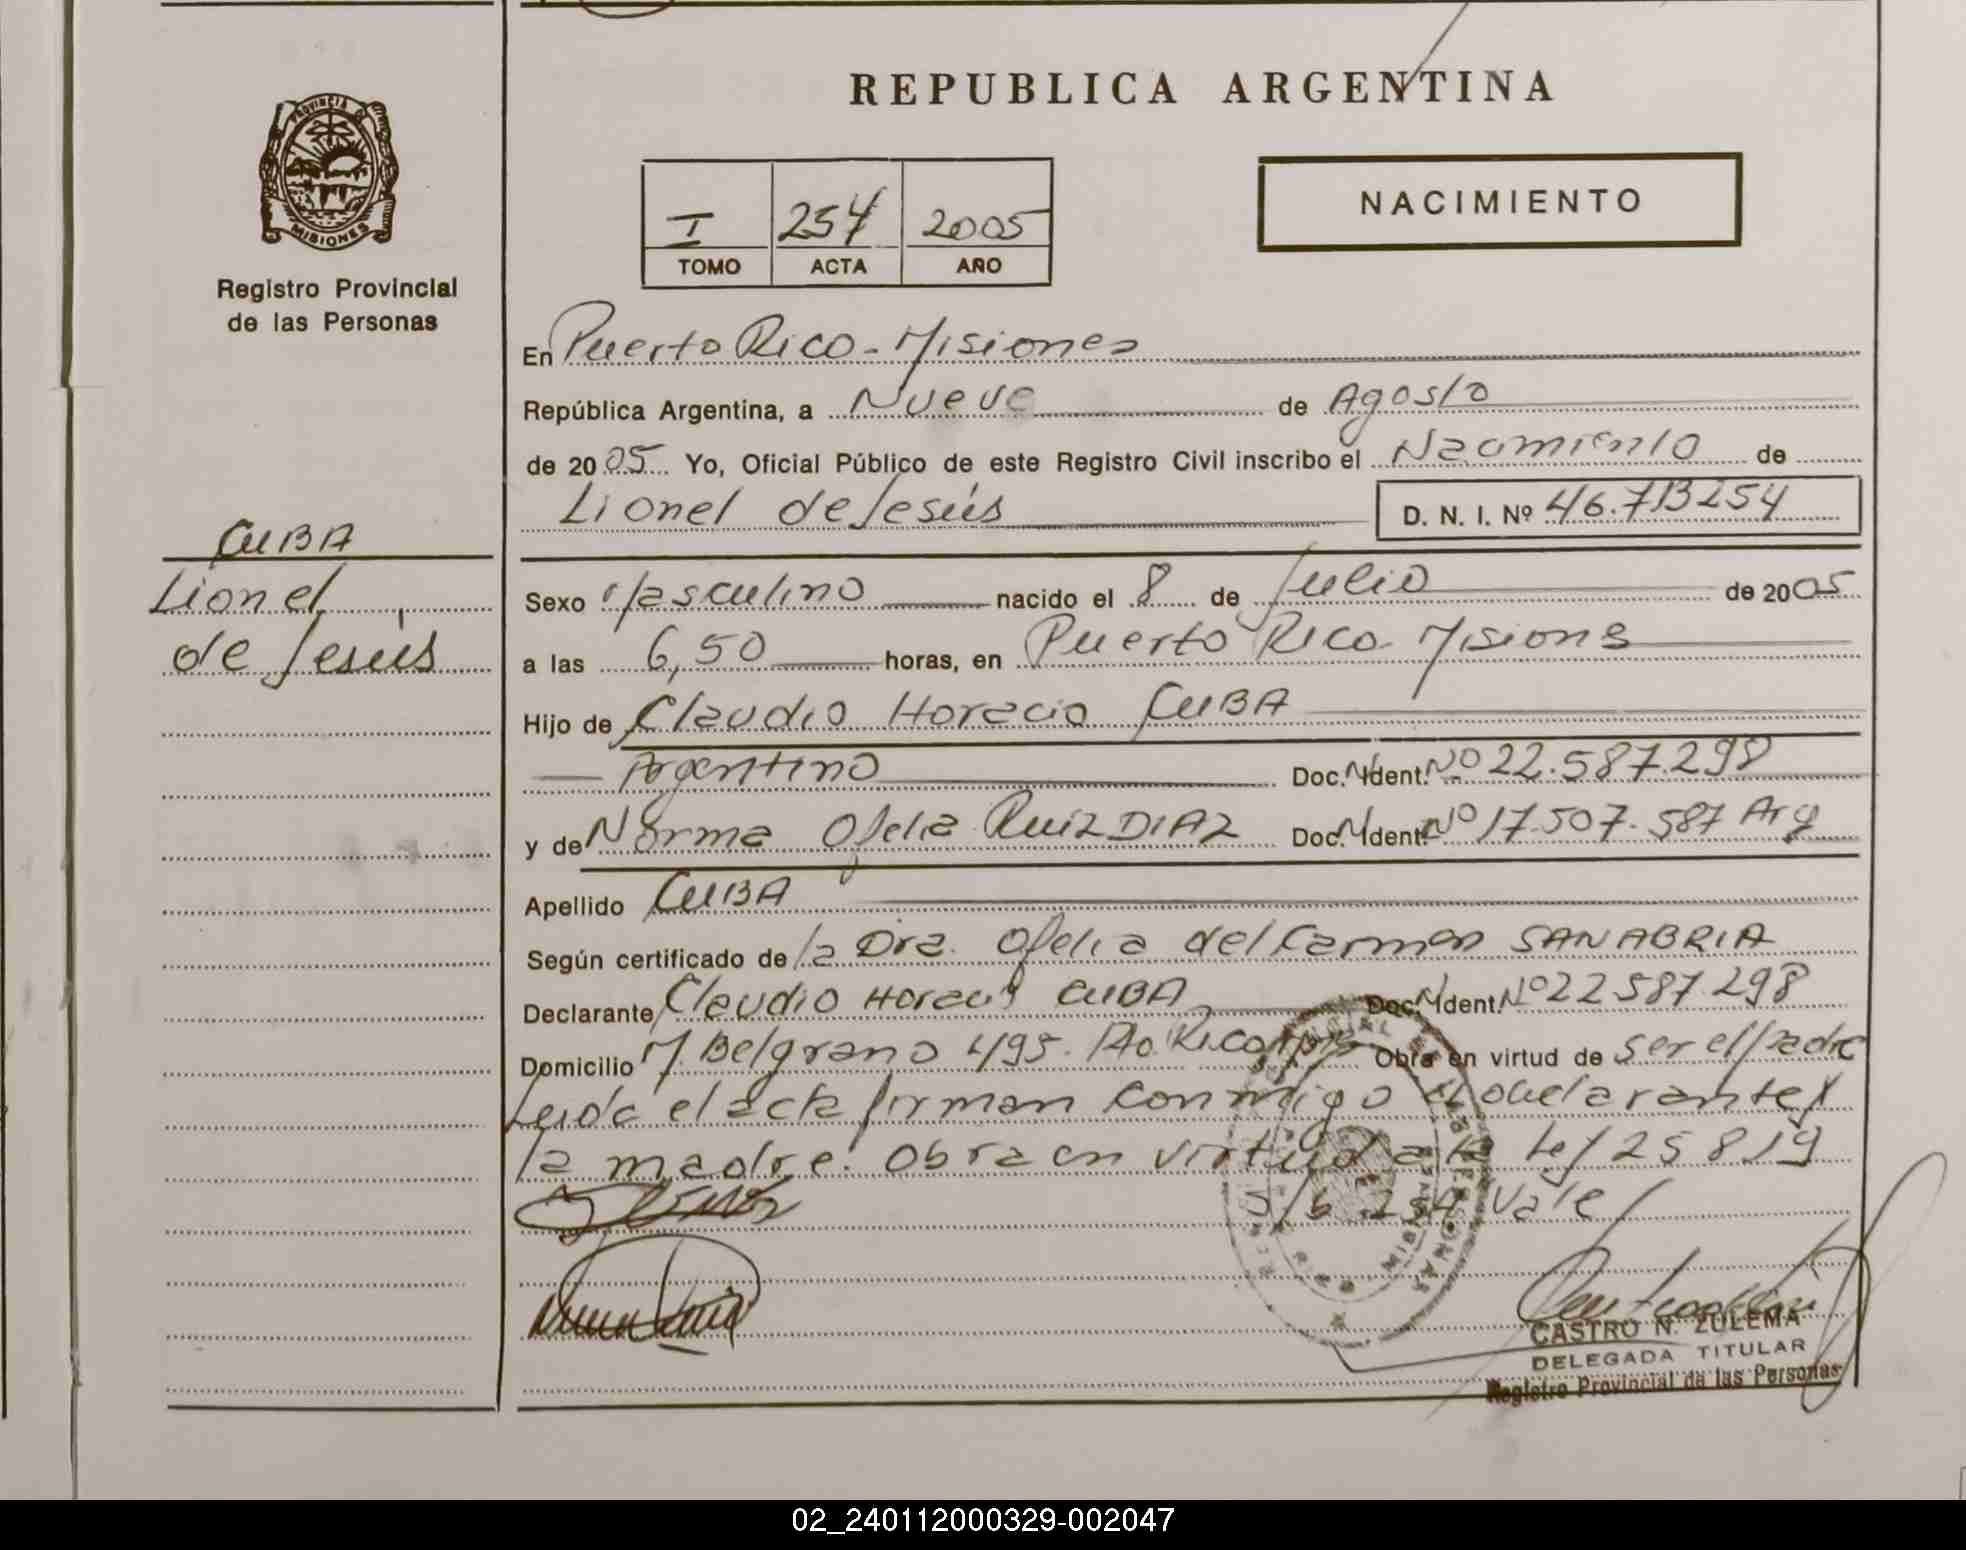 PROVINCIA
MISIONES
Registro Provincial
de las Personas
CUBA
Lionel
de Jesús
REPUBLICA ARGENTINA
I 254 2005
TOMO ACTA AÑO
NACIMIENTO
En Puerto Rico - Misiones
República Argentina, a Nueve de Agosto
de 2005 Yo, Oficial Público de este Registro Civil inscribo el Nacimiento de
Lionel de Jesús D. N. I. Nº 46.713254
Sexo Masculino nacido el 8 de Julio de 2005
a las 6,50 horas, en Puerto Rico - Misiones
Hijo de Claudio Horacio CUBA
Argentino Doc. N Ident. Nº 22.587.298
y de Norma Ofelia Ruiz DIAZ Doc. N Ident. Nº 17.507.587 Arg
Apellido CUBA
Según certificado de la Dra. Ofelia del Carmen SANABRIA
Declarante Claudio Horacio CUBA Doc. N Ident. Nº 22.587.298
Domicilio M. Belgrano 495. Pto. Rico Obra en virtud de ser el padre
Leida el acta firman conmigo el declarante y
la madre. Obra en virtud a la Ley 25819
S/b 254 Vale
CASTRO N. ZULEMA
DELEGADA TITULAR
Registro Provincial de las Personas
02_240112000329-002047